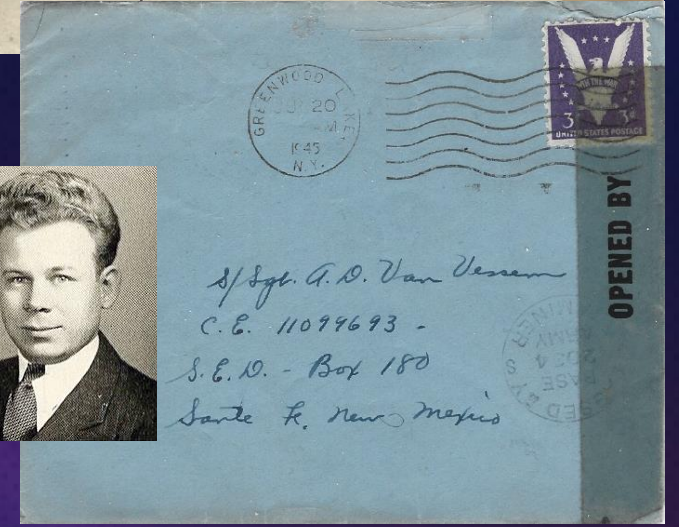 GREENWOOD L KE
20
M
1945
N.Y.
WIN THE WAR
3 3¢
UNITED STATES POSTAGE
OPENED BY
S/Sgt. A. D. Van Vessem
C.E. 11099693 -
S.E.D. - Box 180
Sante Fe, New Mexico
SED BY S
MINER
ARMY
BASE